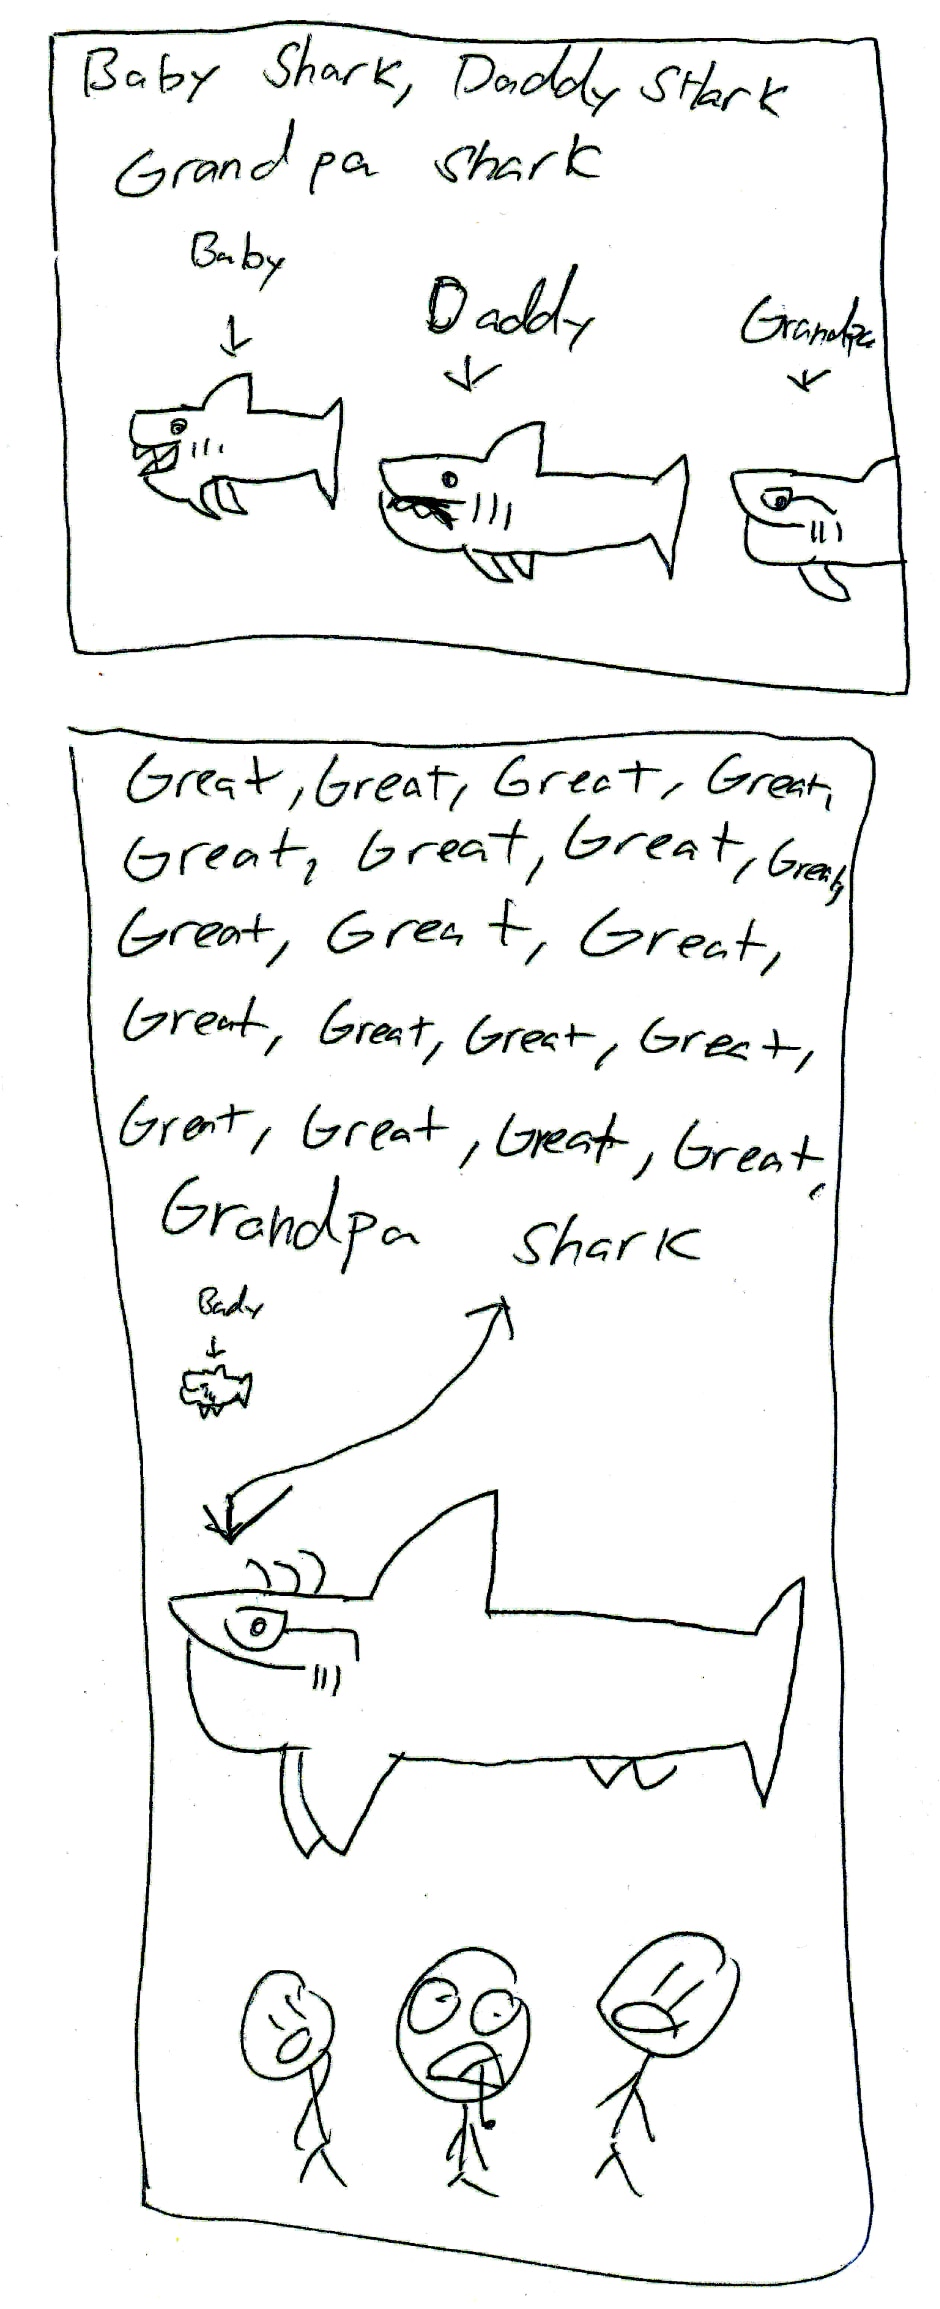 Baby Shark, Daddy SHark
Grandpa shark
Baby
Daddy
Grandpa
Great, Great, Great, Great,
Great, Great, Great, Great,
Great, Great, Great,
Great, Great, Great, Great,
Great, Great, Great, Great,
Grandpa shark
Baby